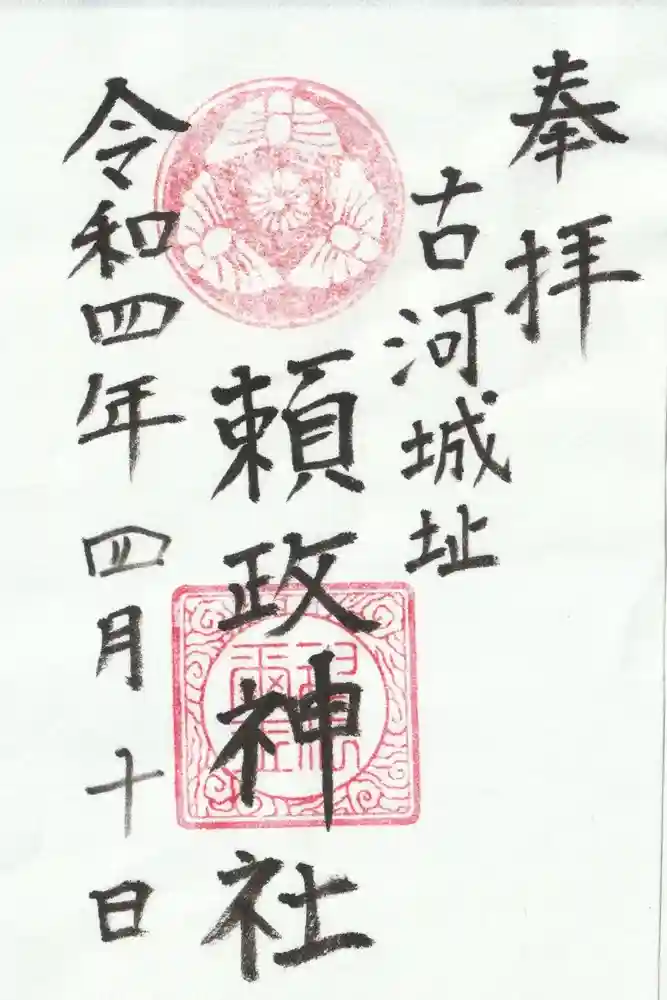 奉拝
古河城址
頼政神社
令和四年四月十日